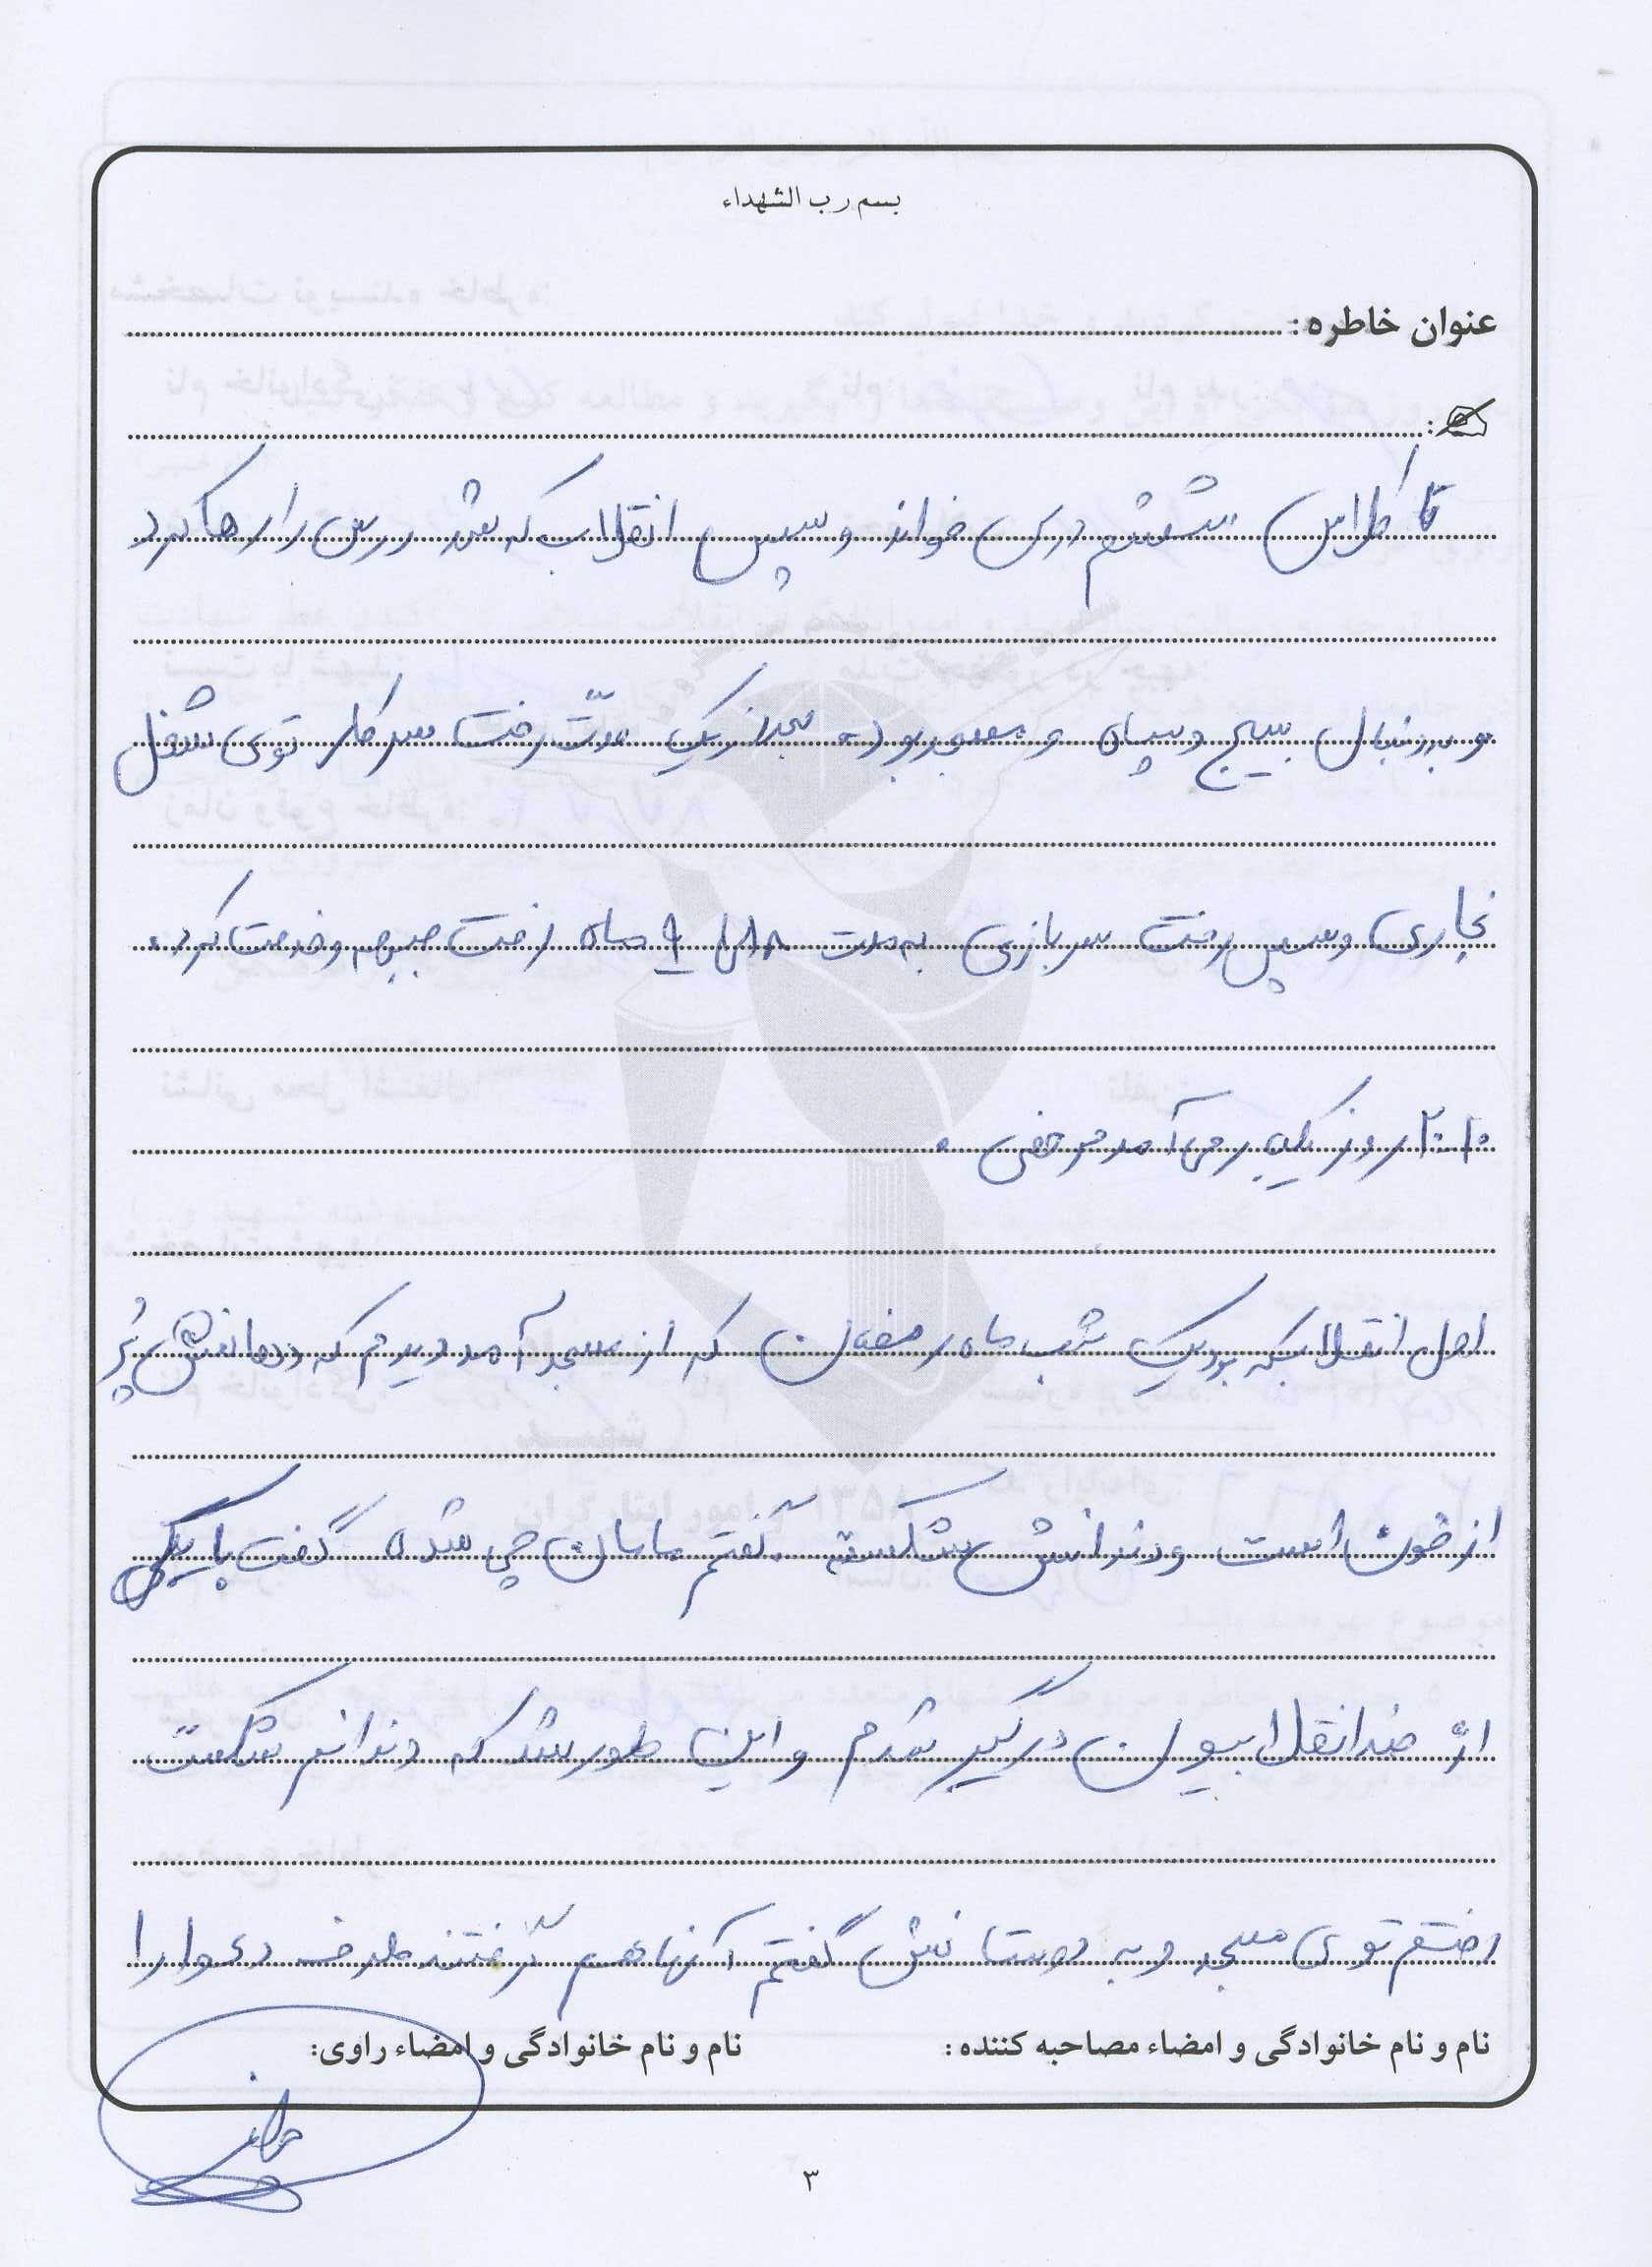 بسم رب الشهداء
عنوان خاطره:
تا کلاس هشتم درس خواند و سپس انقلاب که شد درس را رها کرد
و بدنبال بسیج و سپاه و مسجد بود. بعد از یک مدّت رفت سر کار توی شغل
نجاری و سپس رفت سربازی به مدت ۱۸ ماه رفت جبهه و خدمت کرد.
۲۰ روز یکبار می آمد مرخصی.
اهل انقلاب که بود یک شب ماه رمضان که از مسجد آمد دیدم که دهانش پُر
از خون است و دندانش شکسته. گفتم مامان چی شده گفت با یکی
از ضد انقلابیون درگیر شدم و این طور شد که دندانم شکست
رفتم توی مسجد و به دوستانش گفتم آنها هم گرفتند طرف دعوا را
نام و نام خانوادگی و امضاء مصاحبه کننده:
نام و نام خانوادگی و امضاء راوی:
۳